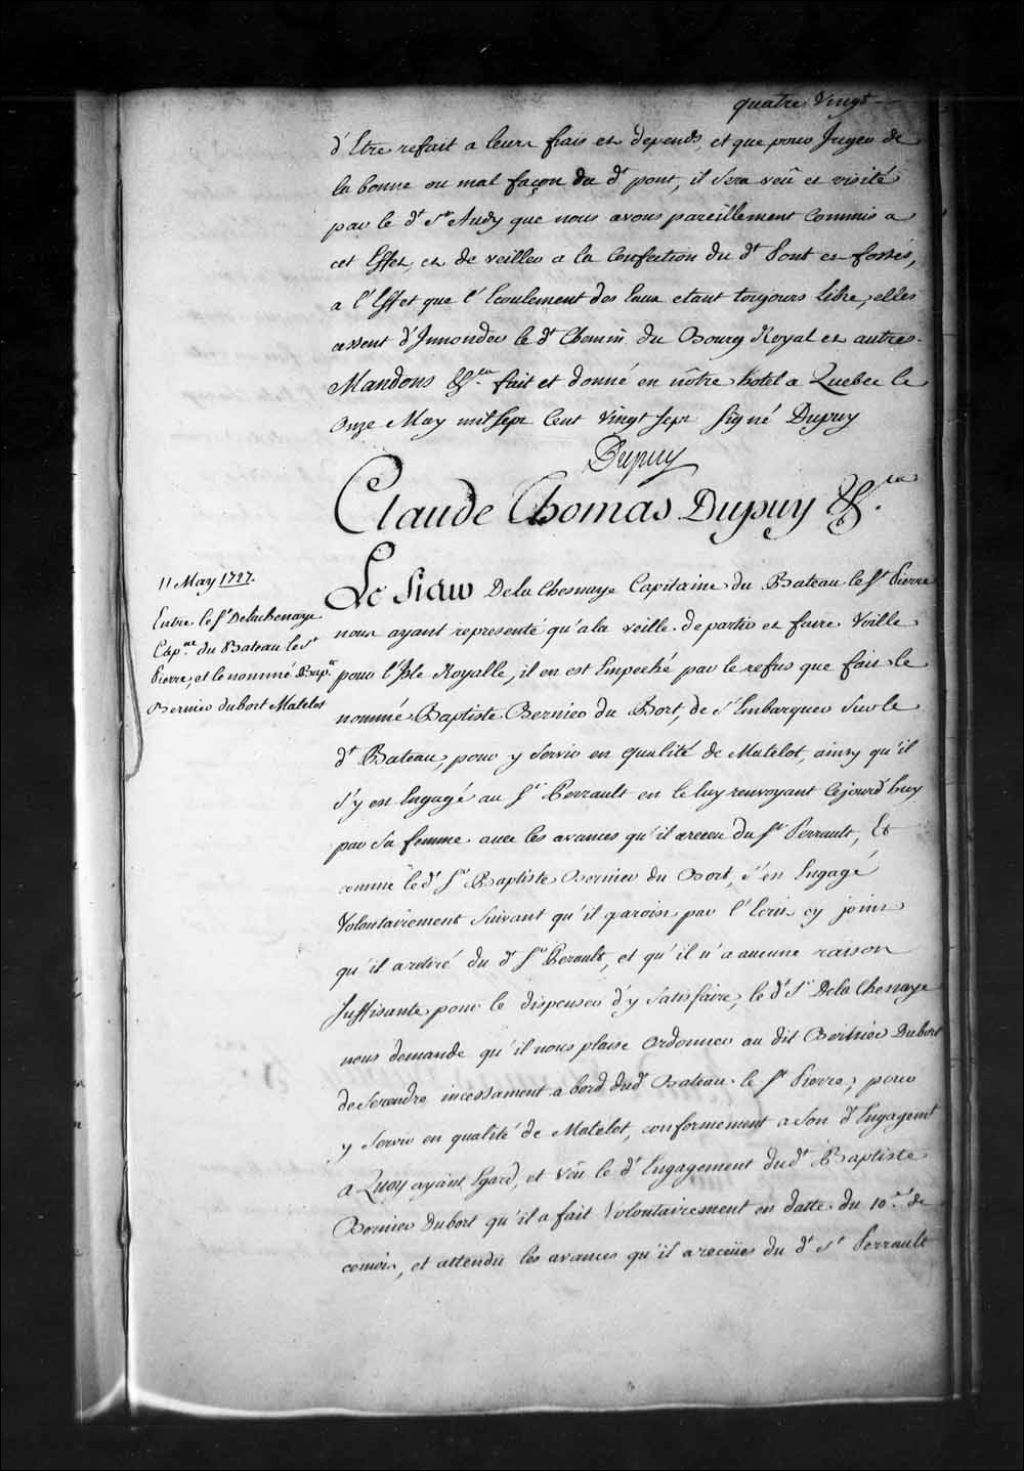 quatre Vingt
d'Etre refait a leurs frais et depends, et que pour Juger de
la bonne ou mal façon du dt pont, il sera veû et visité
par le dt Sr Audy que nous avons pareillement Commis a
cet Effet, et de veiller a la Confection du dt Pont et fossés,
a l'Effet que l'Ecoulement des Eaux etant toujours Libre, elles
cessent d'Jnnonder le dt Chemin du Bourg Royal et autres.
Mandons &ca. fait et donné en nôtre hotel a Quebec le
Onze May mil sept Cent Vingt sept Signé Dupuy
Dupuy
Claude Thomas Dupuy &ca.
11 May 1727.
Entre le Sr Delachenaye
Capne du Bateau le St
Pierre, et le nommé Bapte
Bernier dubort Matelot
Le Sieur De la Chesnaye Capitaine du Bateau le St Pierre
nous ayant representé qu'a la veille de partir et faire Voille
pour l'Isle Royalle, il en est Empeché par le refus que fait le
nommé Baptiste Bernier du Bort, de s'Embarquer sur le
dt Bateau, pour y servir en qualité de Matelot, ainsy qu'il
s'y est Engagé au Sr Perrault en le luy renvoyant cejourd'huy
par sa femme avec les avances qu'il a receu du Sr Perrault, Et
comme le dt Sr Baptiste Bernier du Bort, s'en Engagé
Volontairement suivant qu'il paroist par l'Ecrit cy joint
qu'il a retiré du dt Sr Perault, et qu'il n'a aucune raison
suffisante pour le dispenser d'y satisfaire, le dt Sr De la Chenaye
nous demande qu'il nous plaise Ordonner au dit Bernier Dubort
de se rendre incessament a bord dudt Bateau le St Pierre, pour
y servir en qualité de Matelot, conformement a son dt Engagemt
a Quoy ayant Egard, et Vêu le dt Engagement dudt Baptiste
Bernier Dubort qu'il a fait Volontairement en datte du 10.e de
ce mois, et attendu les avances qu'il a receües du dt Sr Perrault